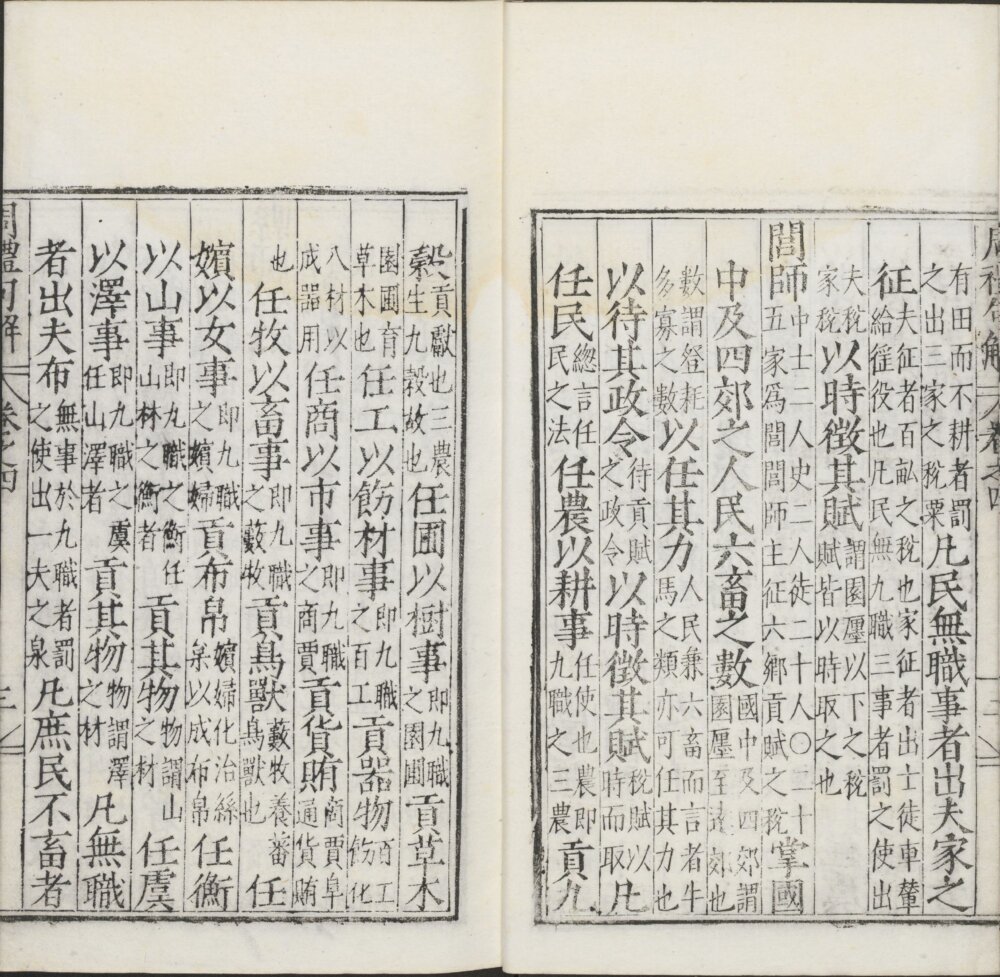 周禮句解 卷之四
有田而不耕者罰之出三家之稅粟凡民無職事者出夫家之
征夫征者百畝之稅也家征者出士徒車輦給徭役也凡民無九職三事者罰之使出
夫稅家稅以時徵其賦謂園廛以下之稅賦皆以時取之也
閭師中士二人史二人徒二十人〇二十五家爲閭閭師主征六鄉貢賦之稅掌國
中及四郊之人民六畜之數國中及四郊謂園廛至遠郊也
數謂登耗多寡之數以任其力人民兼六畜而言者牛馬之類亦可任其力也
以待其政令待貢賦之政令以時徵其賦稅賦以時而取凡
任民總言任民之法任農以耕事任使也農即九職之三農貢九
穀貢獻也三農生九穀故也任圃以樹事即九職之園圃貢草木
園圃育草木也任工以飭材事即九職之百工貢器物百工飭化
八材以成器用任商以市事即九職之商賈貢貨賄商賈阜通貨賄
也任牧以畜事即九職之藪牧貢鳥獸藪牧養蕃鳥獸也任
嬪以女事即九職之嬪婦貢布帛嬪婦化治絲枲以成布帛任衡
以山事即九職之衡任山林之衡者貢其物物謂山之材任虞
以澤事即九職之虞任山澤者貢其物物謂澤之材凡無職
者出夫布無事於九職者罰之使出一夫之泉凡庶民不畜者
周禮句解 卷之四 三